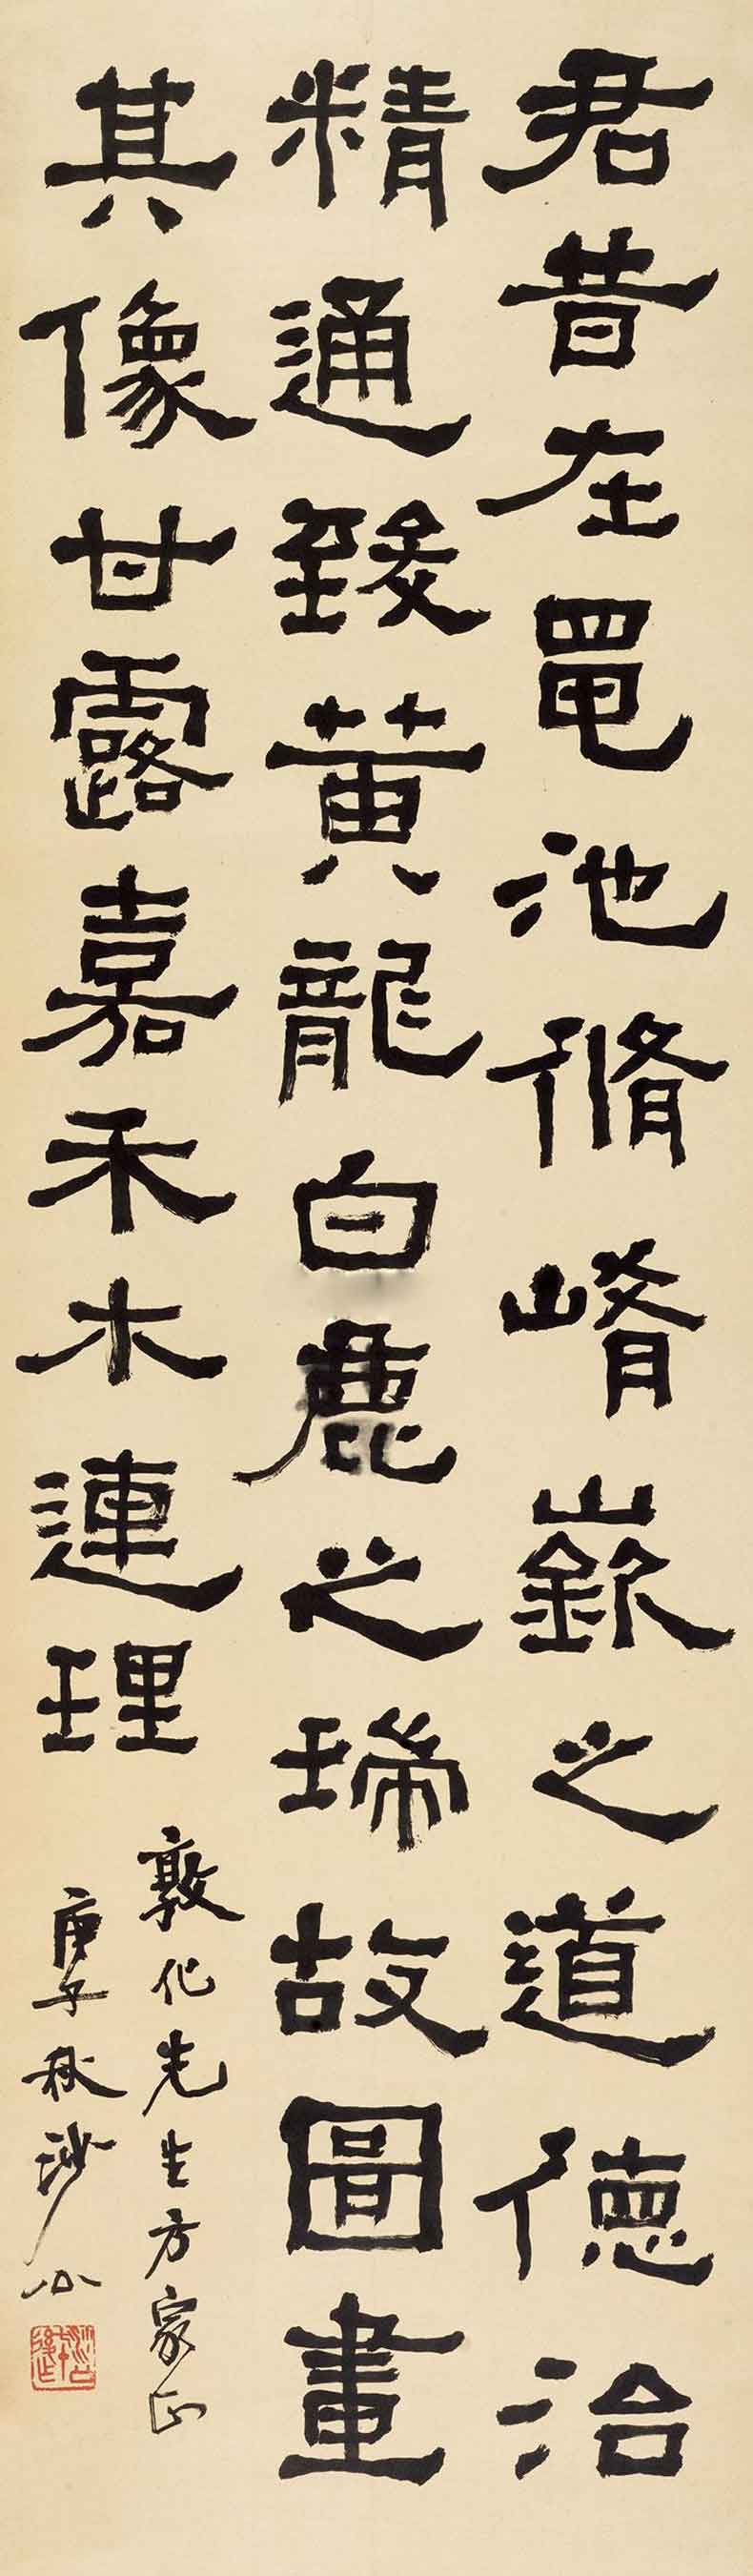 君昔在黽池脩崤嶔之道德治
精通致黄龍白鹿之瑞故圖畫
其像甘露嘉禾木連理
敦化先生方家正
庚子秋沙公